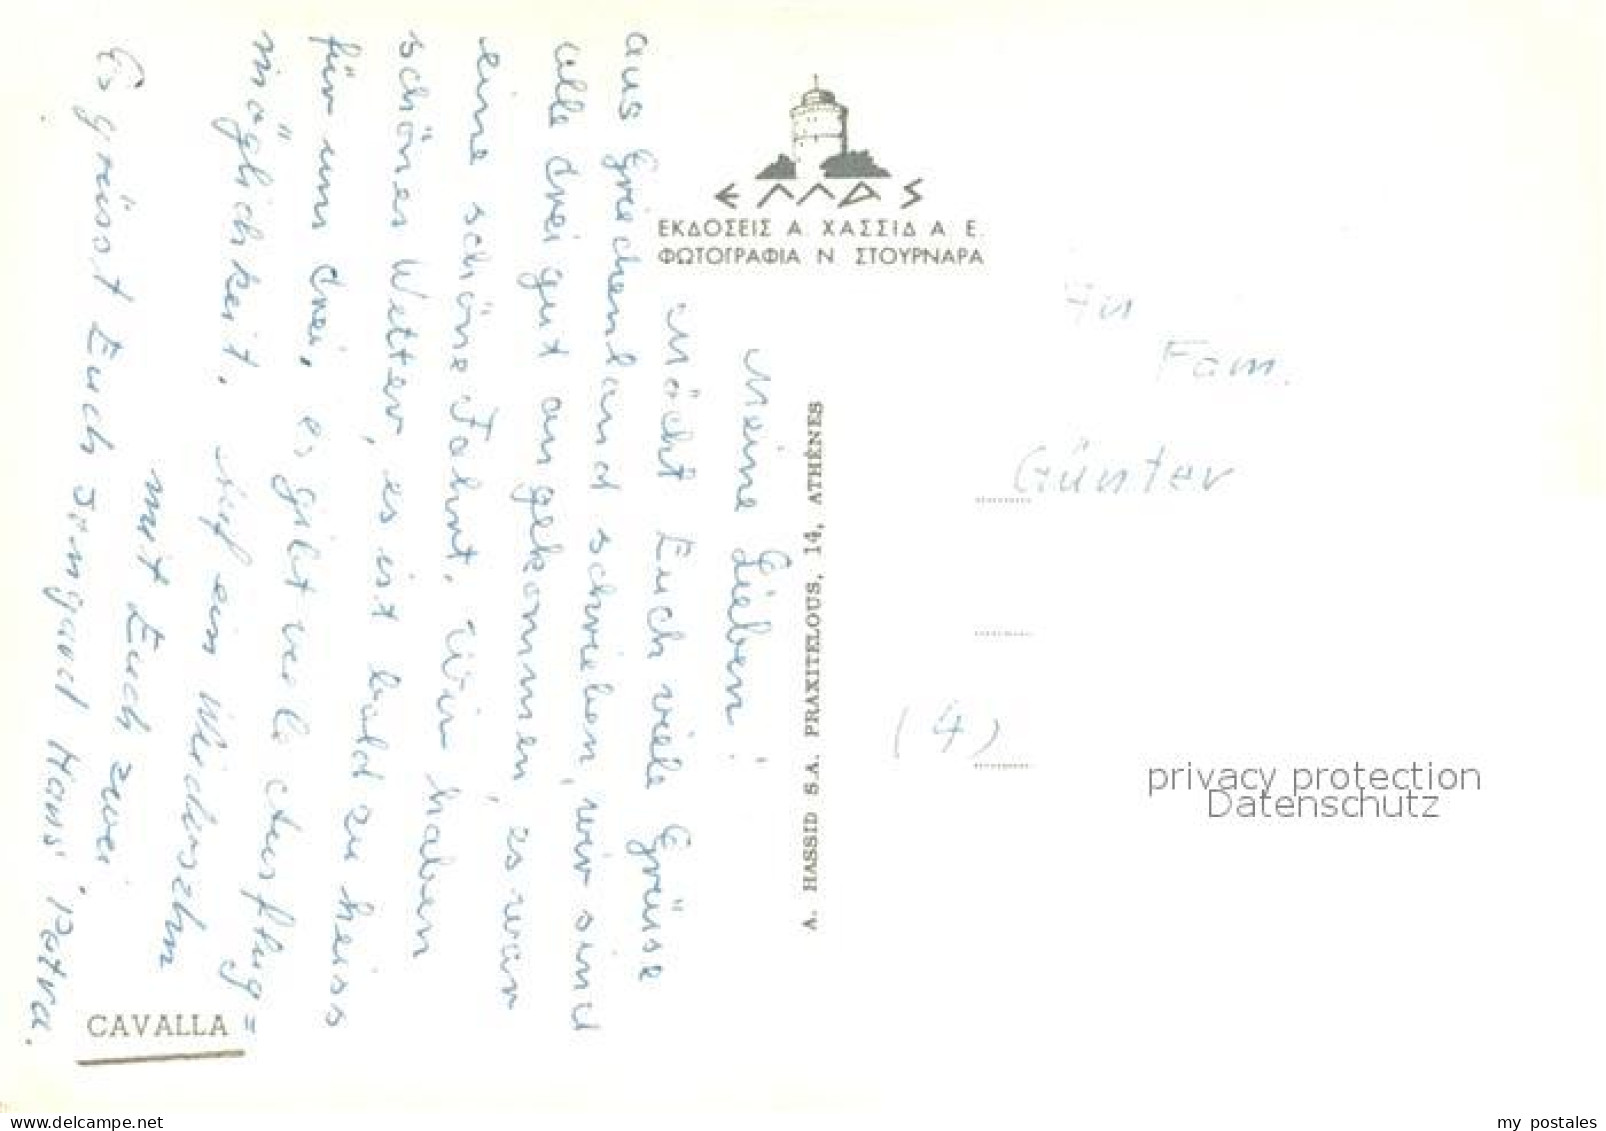 Meine Lieben!
Möcht Euch viele Grüsse
aus Griechenland schreiben, wir sind
alle drei gut angekommen, es war
eine schöne Fahrt. Wir haben
schönes Wetter, es ist bald zu heiss
für uns drei, es gibt viele Ausflug=
möglichkeit. Auf ein Wiedersehn
mit Euch zwei
Es grüsst Euch Irmgard Hans Petra.
CAVALLA
ΕΛΛΑΣ
ΕΚΔΟΣΕΙΣ Α. ΧΑΣΣΙΔ Α. Ε.
ΦΩΤΟΓΡΑΦΙΑ Ν. ΣΤΟΥΡΝΑΡΑ
A. HASSID S.A. PRAXITELOUS, 14, ATHÈNES
An
Fam.
Günter
(4)
privacy protection
Datenschutz
www.delcampe.net
my_postales